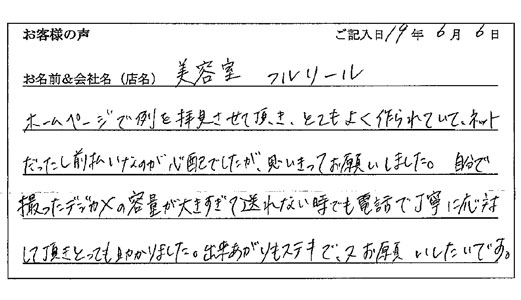 お客様の声 ご記入日 19年 6月 6日
お名前&会社名（店名） 美容室 フルリール
ホームページで例を拝見させて頂き、とてもよく作られていて、ネット
だったし前払いなのが心配でしたが、思いきってお願いしました。自分で
撮ったデジカメの容量が大きすぎて送れない時でも電話で丁寧に応対
して頂きとっても助かりました。出来あがりもステキで、又お願いしたいです。